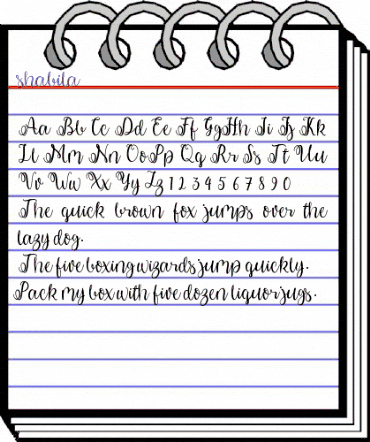 shabila
Aa Bb Cc Dd Ee Ff Gg Hh Ii Jj Kk
Ll Mm Nn Oo Pp Qq Rr Ss Tt Uu
Vv Ww Xx Yy Zz 1 2 3 4 5 6 7 8 9 0
The quick brown fox jumps over the
lazy dog.
The five boxing wizards jump quickly.
Pack my box with five dozen liquor jugs.